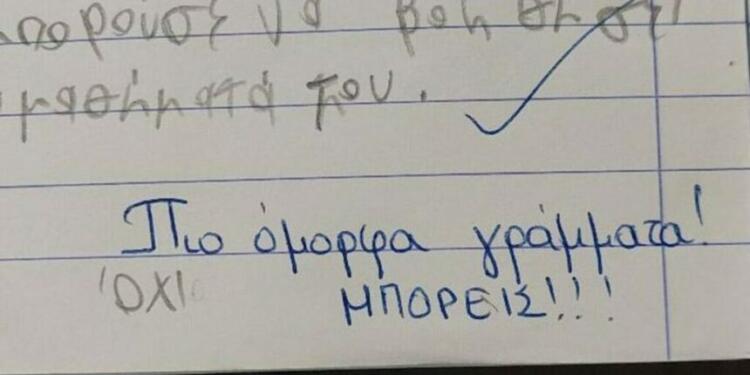 πορούσε να βοηθήσει
μαθήματά μου.
Πιο όμορφα γράμματα!
ΌΧΙ ΜΠΟΡΕΙΣ!!!